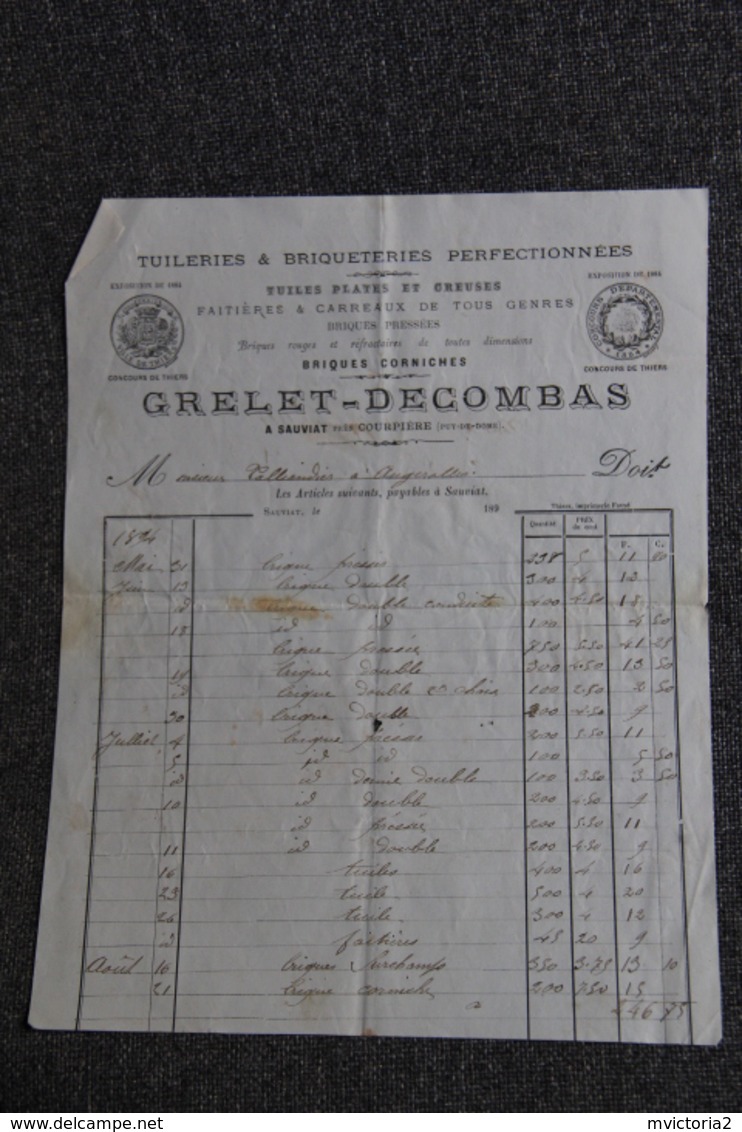 TUILERIES & BRIQUETERIES PERFECTIONNÉES
EXPOSITION DE 1884
TUILES PLATES ET CREUSES
EXPOSITION DE 1884
FAITIÈRES & CARREAUX DE TOUS GENRES
BRIQUES PRESSÉES
Briques rouges et réfractaires de toutes dimensions
BRIQUES CORNICHES
CONCOURS DÉPARTEMENTAL
1884
CONCOURS DE THIERS
CONCOURS DE THIERS
GRELET-DECOMBAS
A SAUVIAT PRÈS COURPIÈRE (PUY-DE-DOME).
Monsieur à Augerolles Doit
Les Articles suivants, payables à Sauviat,
SAUVIAT, le 189 Thiers, imprimerie Favyé
Quantité PRIX du cent F. C.
1894
Mai 31 brique pressée 238 5 11
Juin 13 brique double 300 4 12
id brique double conduite 400 4.50 18
18 id id 100 4 50
brique pressée 750 5.50 41 25
19 brique double 300 4.50 13 50
id brique double 100 2.50 2 50
30 brique double 200 4.50 9
Julliet 4 brique pressée 200 5.50 11
5 id id 100 5 50
id id demie double 100 3.50 3 50
10 id double 200 4.50 9
id pressée 200 5.50 11
11 id double 200 4.50 9
16 tuiles 400 4 16
23 tuile 500 4 20
26 tuile 300 4 12
id faitières 45 20 9
Août 16 briques 350 3.75 13 10
21 brique corniche 200 7.50 15
246 75
www.delcampe.net
mvictoria2